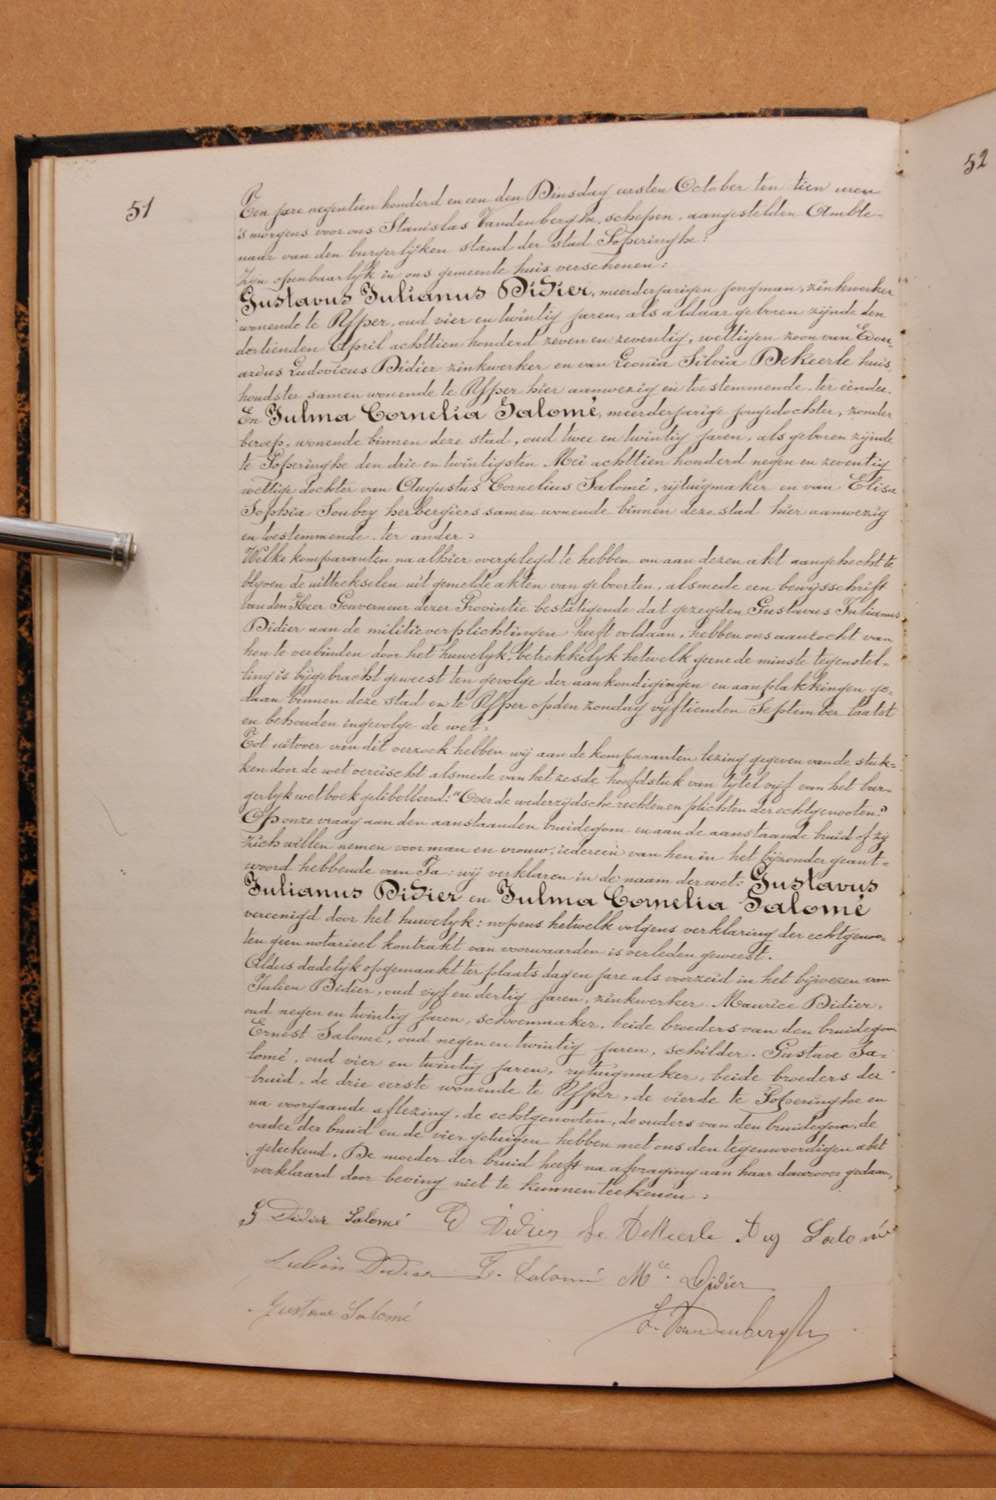 51
52
Ten jare negentien honderd en een den Dinsdag eersten October ten tien uren
's morgens voor ons Stanislas Vandenberghe, schepen, aangestelden Ambte-
naar van den burgerlijken stand der stad Poperinghe:
Zijn openbaarlyk in ons gemeente huis verschenen:
Gustavus Julianus Didier, meerderjarigen jongman, zinkwerker
wonende te Ypper, oud vier en twintig jaren, als aldaar geboren zijnde den
dertienden April achttien honderd zeven en zeventig, wettigen zoon van Edou-
ardus Ludovicus Didier zinkwerker en van Leonia Silvia Dekeerle huis-
houdster samen wonende te Ypper hier aanwezig en toestemmende. ter eender.
En Julma Cornelia Salomé, meerderjarige jongedochter, zonder
beroep, wonende binnen deze stad, oud twee en twintig jaren, als geboren zijnde
te Poperinghe den drie en twintigsten Mei achttien honderd negen en zeventig
wettige dochter van Augustus Cornelius Salomé, rijtuigmaker en van Elisa
Sophia Soubry herbergiers samen wonende binnen deze stad hier aanwezig
en toestemmende. ter ander:
Welke komparanten na alhier overgelegd te hebben om aan dezen akt aangehecht te
blyven de uittrekselen uit gemelde akten van geboorten, alsmede een bewysschrift
van den Heer Gouverneur dezer Provintie bestatigende dat gezeyden Gustavus Julianus
Didier aan de militieverplichtingen heeft voldaan, hebben ons aanzocht van
hen te verbinden door het huwelyk, betrekkelyk hetwelk geene de minste tegenstel-
ling is bygebracht geweest ten gevolge der aankondigingen en aanplakkingen ge-
daan binnen deze stad en te Ypper op den zondag vyftienden September laatst
en behouden ingevolge de wet.
Tot uitvoer van dit verzoek hebben wij aan de komparanten lezing gegeven van de stuk-
ken door de wet vereischt alsmede van het zesde hoofdstuk van tytel vyf van het bur-
gerlyk wetboek getibelleerd: "Over de wederzydsche rechten en plichten der echtgenooten."
Op onze vraag aan den aanstaanden bruidegom en aan de aanstaande bruid of zij
zich willen nemen voor man en vrouw, iedereen van hen in het bijzonder geant-
woord hebbende van Ja: wij verklaren in de naam der wet: Gustavus
Julianus Didier en Julma Cornelia Salomé
vereenigd door het huwelyk: nopens hetwelk volgens verklaring der echtgenoo-
ten geen notarieel kontrakt van voorwaarden is verleden geweest.
Aldus dadelijk opgemaakt ter plaats dag en jare als voorzeid in het bijwezen van
Julien Didier, oud vyf en dertig jaren, zinkwerker. Maurice Didier,
oud negen en twintig jaren, schoenmaker, beide broeders van den bruidegom
Ernest Salomé, oud negen en twintig jaren, schilder. Gustave Sa-
lomé, oud vier en twintig jaren, rytuigmaker, beide broeders der
bruid, de drie eerste wonende te Ypper, de vierde te Poperinghe en
na voorgaande aflezing, de echtgenooten, de ouders van den bruidegom, de
vader der bruid en de vier getuigen hebben met ons den tegenwoordigen akt
geteekend. De moeder der bruid heeft na afvraging aan haar daarover gedaan,
verklaard door beving niet te kunnen teekenen:
G Didier Salomé Didier Dekeerle Aug Salomé
Julien Didier E. Salomé Mce. Didier
Gustave Salomé S. Vandenberghe